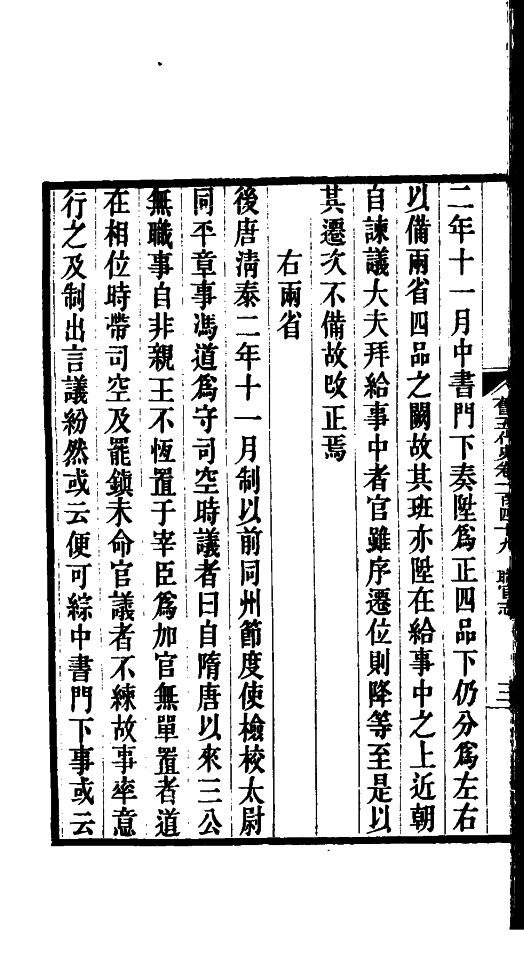 二年十一月中書門下奏陞爲正四品下仍分爲左右
以備兩省四品之闕故其班亦陞在給事中之上近朝
自諫議大夫拜給事中者官雖序遷位則降等至是以
其遷次不備故改正焉
右兩省
後唐淸泰二年十一月制以前同州節度使檢校太尉
同平章事馮道爲守司空時議者曰自隋唐以來三公
無職事自非親王不恆置于宰臣爲加官無單置者道
在相位時帶司空及罷鎭未命官議者不練故事率意
行之及制出言議紛然或云便可綜中書門下事或云
舊五代史卷一百四十九 職官志 三